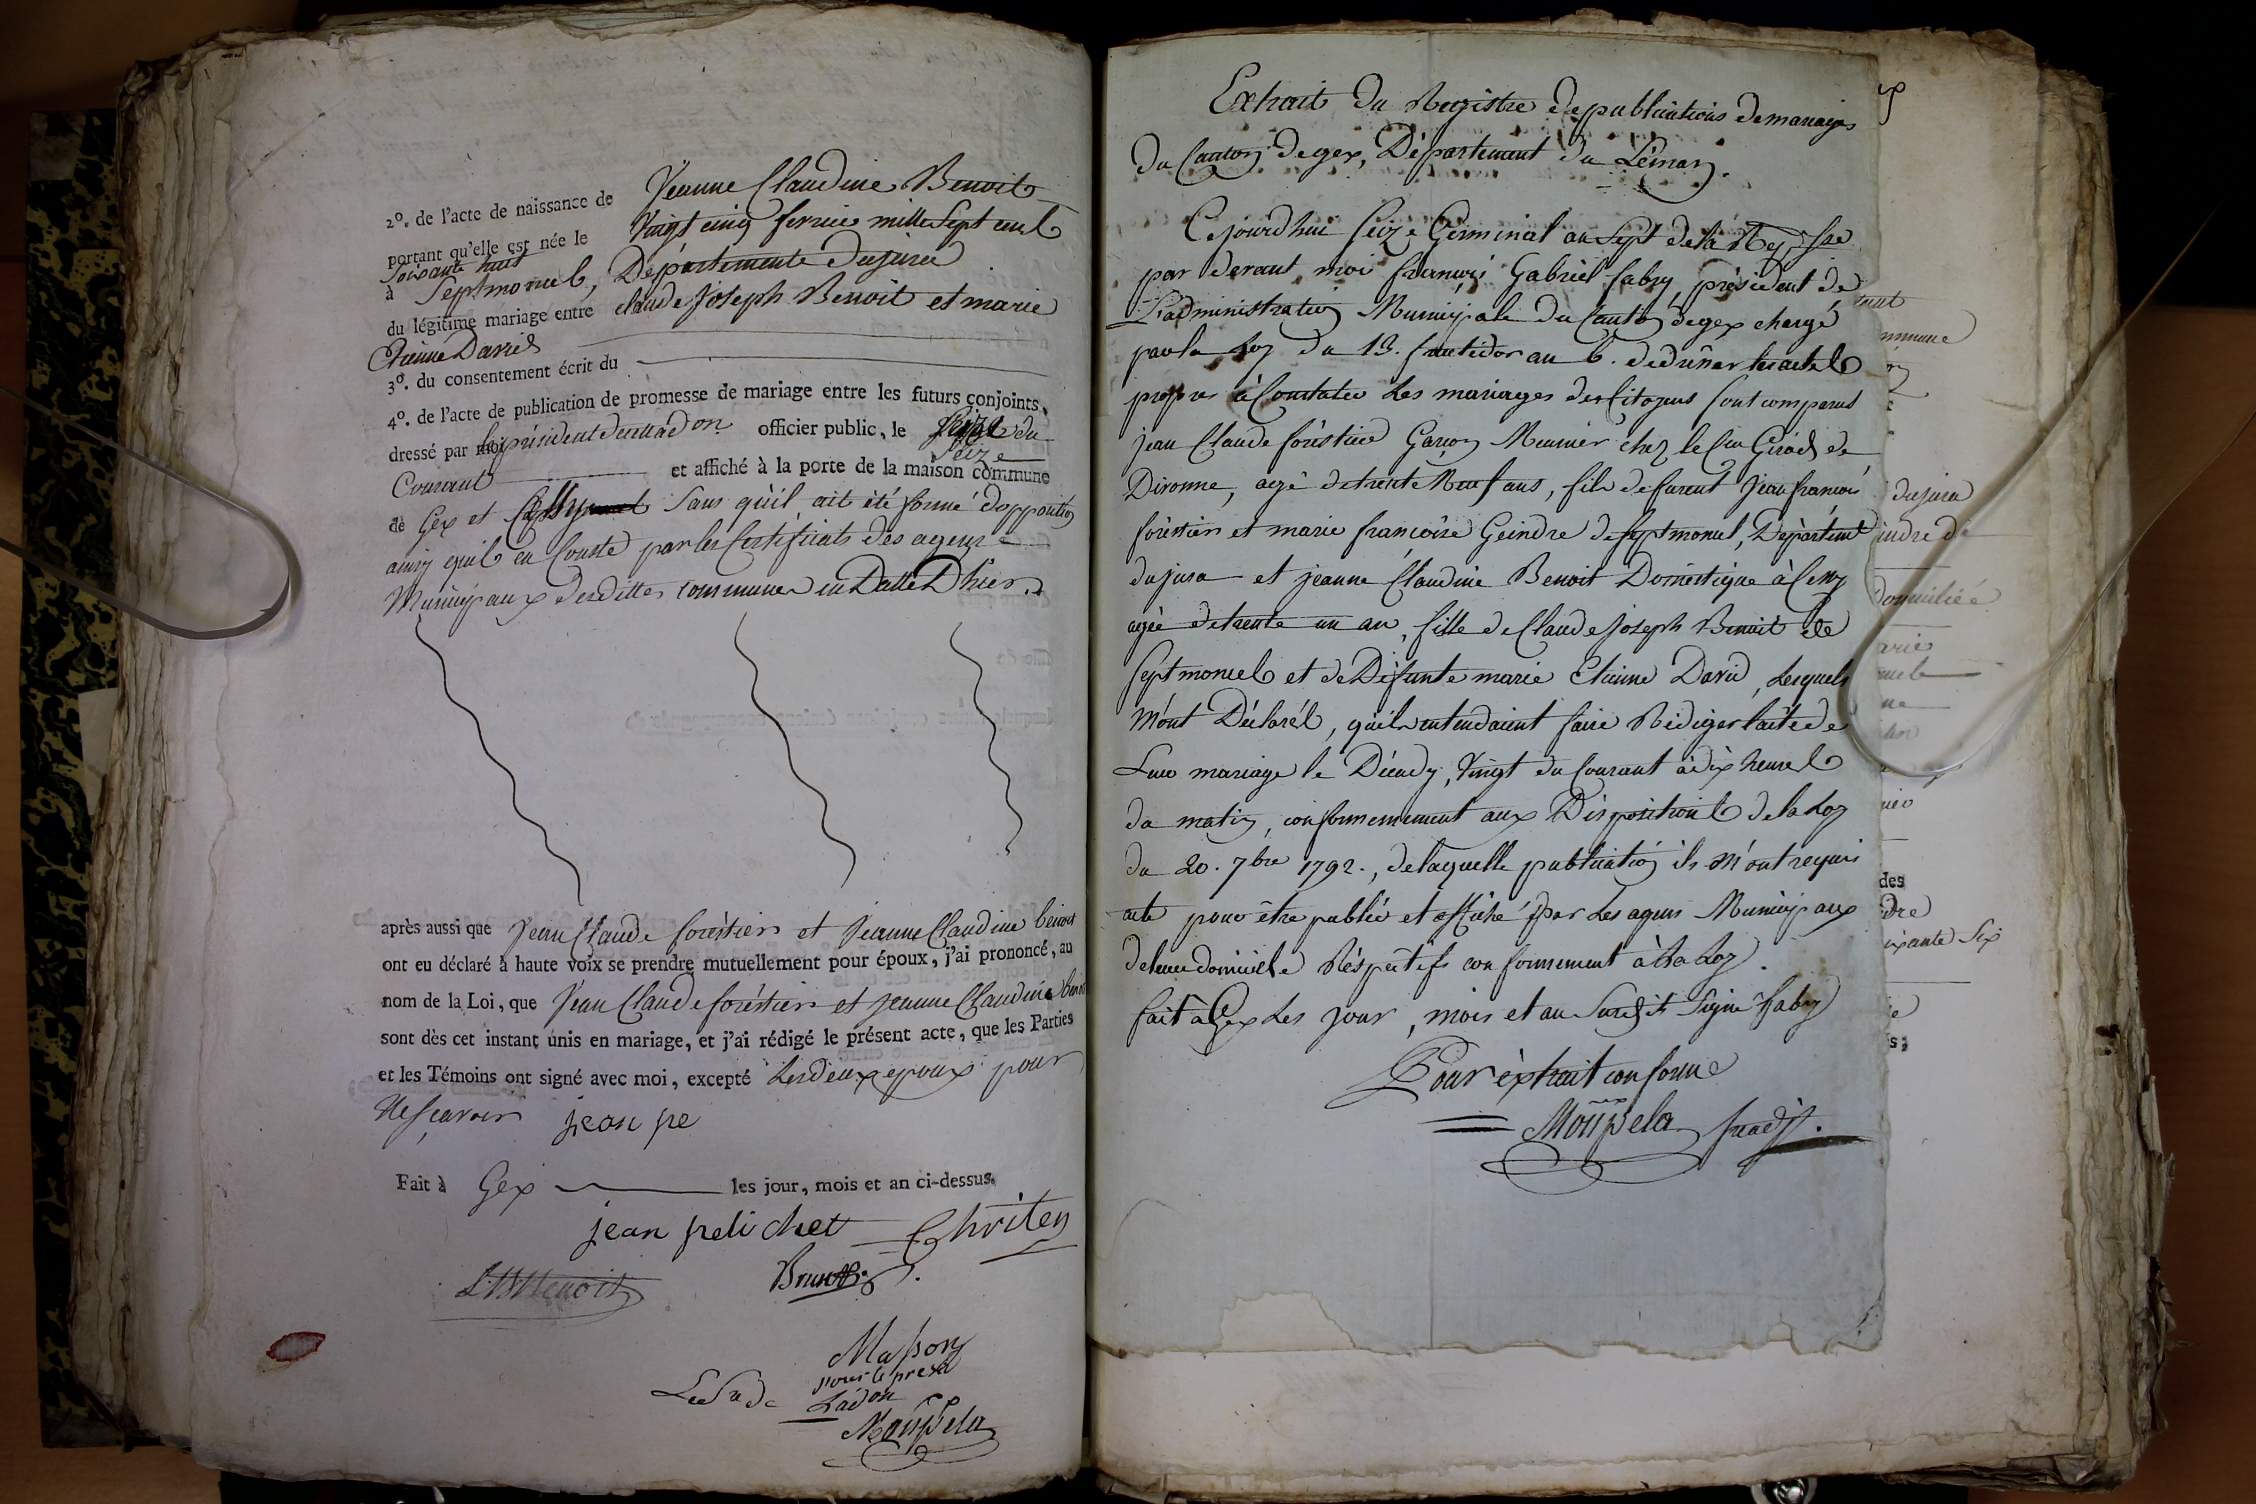 2°. de l'acte de naissance de Jeanne Claudine Benoit
portant qu'elle est née le Vingt cinq fevrier mille Sept cent
Soixante huit
à Septmoncel, Département du jura
du légitime mariage entre claude Joseph Benoit et marie
Etienne David
3°. du consentement écrit du
4°. de l'acte de publication de promesse de mariage entre les futurs conjoints,
dressé par moi le président de officier public, le Seize du
Seize
Courant et affiché à la porte de la maison commune
de Gex et Cessy Sans qu'il ait été formé d'opposition
ainsy quil en Conste par les Certificats des agens
Municipaux desdittes communes en Datte D'hier.
après aussi que Jean Claude foréstier et Jeanne Claudine benoit
ont eu déclaré à haute voix se prendre mutuellement pour époux, j'ai prononcé, au
nom de la Loi, que Jean Claude foréstier et jeanne Claudine benoit
sont dès cet instant unis en mariage, et j'ai rédigé le présent acte, que les Parties
et les Témoins ont signé avec moi, excepté Les deux epoux pour
Ne sçavoir jean pe
Fait à Gex les jour, mois et an ci-dessus.
jean pelichet Chriten
Benoit Brunet
Masson
pour le presd
Ladon
Moupela
Extrait du Registre de publications de mariages
du Canton de gex, Département du Léman.
Cejourd'hui Seize Germinal an Sept de la
par devant moi françois Gabriel fabry, président de
L'administration Municipale du Canton de gex chargé
par la Loy du 13. fructidor an 6. de
propres à Constater Les mariages des Citoyens sont comparus
jean Claude foréstier Garçon Meunier chez le Cen Girod de
Divonne, agé de trente Neuf ans, fils de furent Jean françois
foréstier et marie françoise Geindre de septmoncel, Département
du jura et jeanne Claudine Benoit Doméstique à Cessy
agée de trente un an, fille de Claude Joseph Benoit de
Septmoncel et de Défunte marie Etienne David, Lesquels
m'ont Déclaré, qu'ils entendaient faire Rédiger l'acte de
Leur mariage le Décady, Vingt du Courant à dix heures
du matin, conformement aux Dispositions de la Loy
du 20. 7bre 1792., de laquelle publication ils M'ont requis
acte pour être publié et affiché par Les agens Municipaux
de leur domicile Réspectifs conformement à la Loy.
fait à Gex Les jour, mois et an Susdits Signé fabry
Pour èxtrait conforme
Moupela
mmune
du jura
indre de
Domiciliée
arie
ne
des
dre
ixante Six